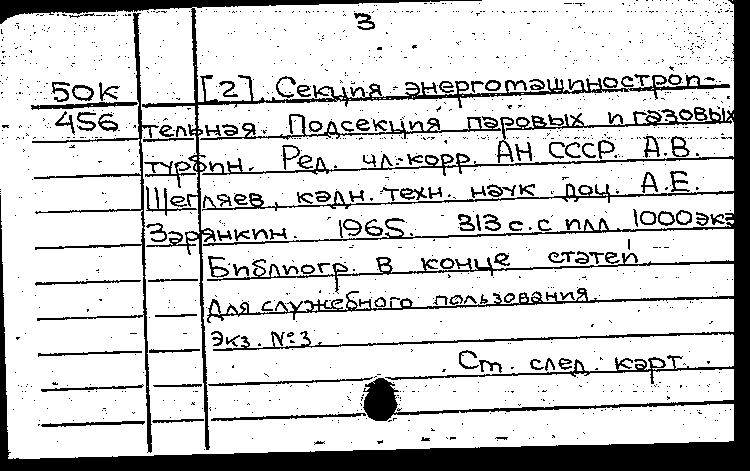 3
50К [2]. Секция энергомашинострои-
456 тельная. Подсекция паровых и газовых
турбин. Ред. чл.-корр. АН СССР. А.В.
Щегляев, кадн. техн. наук доц. А.Е.
Зарянкин. 1965. 313 с. с илл 1000 экз
Библиогр. в конце статей
Для служебного пользования.
Экз. №3.
Ст. след. карт.